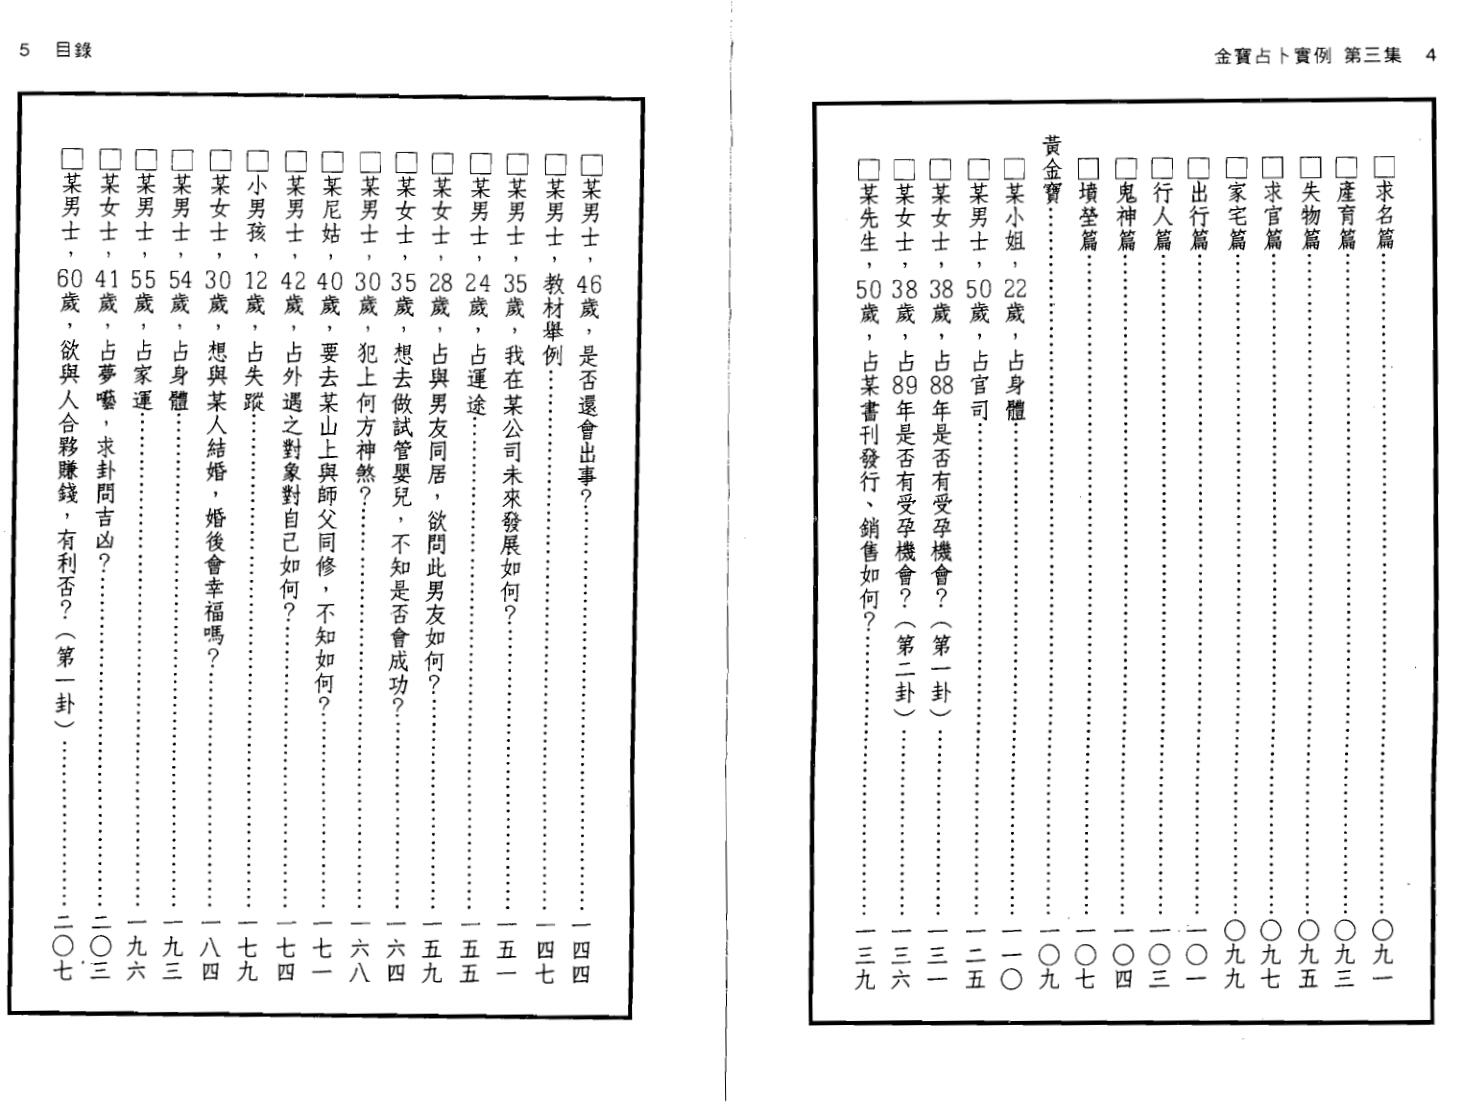 金寶占卜實例 第三集 4
□求名篇……〇九一
□產育篇……〇九三
□失物篇……〇九五
□求官篇……〇九七
□家宅篇……〇九九
□出行篇……一〇一
□行人篇……一〇三
□鬼神篇……一〇四
□墳塋篇……一〇七
黃金寶……一〇九
□某小姐，22歲，占身體……一一〇
□某男士，50歲，占官司……一二五
□某女士，38歲，占88年是否有受孕機會？（第一卦）……一三一
□某女士，38歲，占89年是否有受孕機會？（第二卦）……一三六
□某先生，50歲，占某書刊發行、銷售如何？……一三九
5 目錄
□某男士，46歲，是否還會出事？……一四四
□某男士，教材舉例……一四七
□某男士，35歲，我在某公司未來發展如何？……一五一
□某男士，24歲，占運途……一五五
□某女士，28歲，占與男友同居，欲問此男友如何？……一五九
□某女士，35歲，想去做試管嬰兒，不知是否會成功？……一六四
□某男士，30歲，犯上何方神煞？……一六八
□某尼姑，40歲，要去某山上與師父同修，不知如何？……一七一
□某男士，42歲，占外遇之對象對自己如何？……一七四
□小男孩，12歲，占失蹤……一七九
□某女士，30歲，想與某人結婚，婚後會幸福嗎？……一八四
□某男士，54歲，占身體……一九三
□某男士，55歲，占家運……一九六
□某女士，41歲，占夢囈，求卦問吉凶？……二〇三
□某男士，60歲，欲與人合夥賺錢，有利否？（第一卦）……二〇七